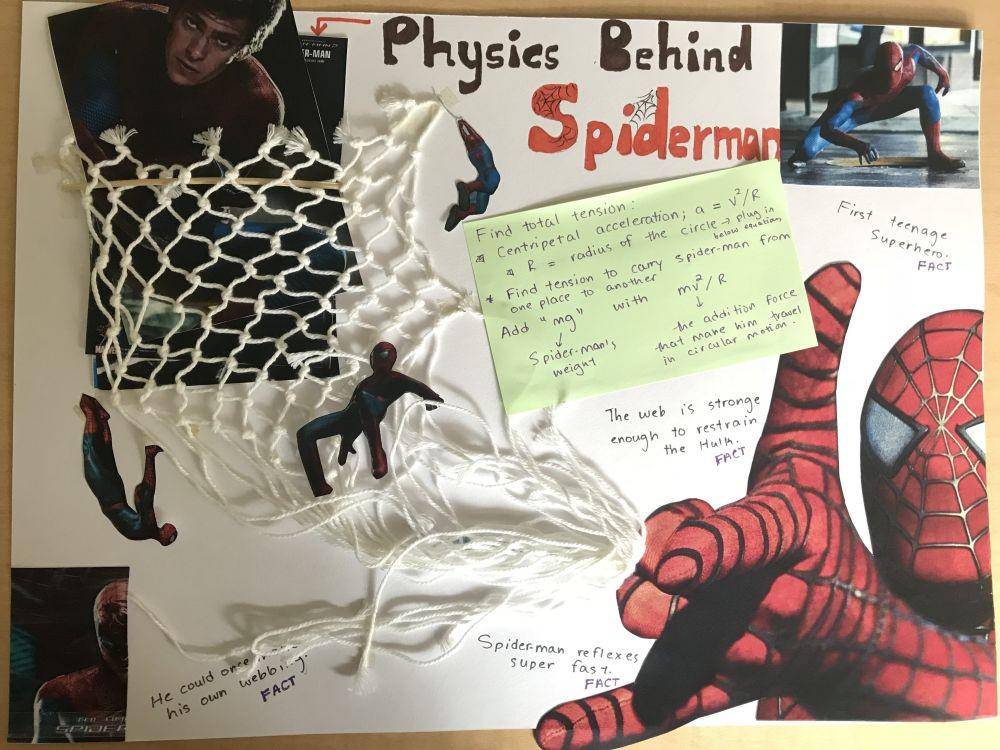 R-MAN
Physics Behind
Spiderman
Find total tension:
Centripetal acceleration; a = v²/R
R = radius of the circle → plug in
below equation
* Find tension to carry spider-man from
one place to another
Add "mg" with mv²/R
↓ ↓
Spider-man's
weight
the addition force
that make him travel
in circular motion.
First teenage
Superhero.
FACT
The web is stronge
enough to restrain
the Hulk.
FACT
He could once
his own webbing.
FACT
Spider-man reflexes
super fast.
FACT
SPIDER